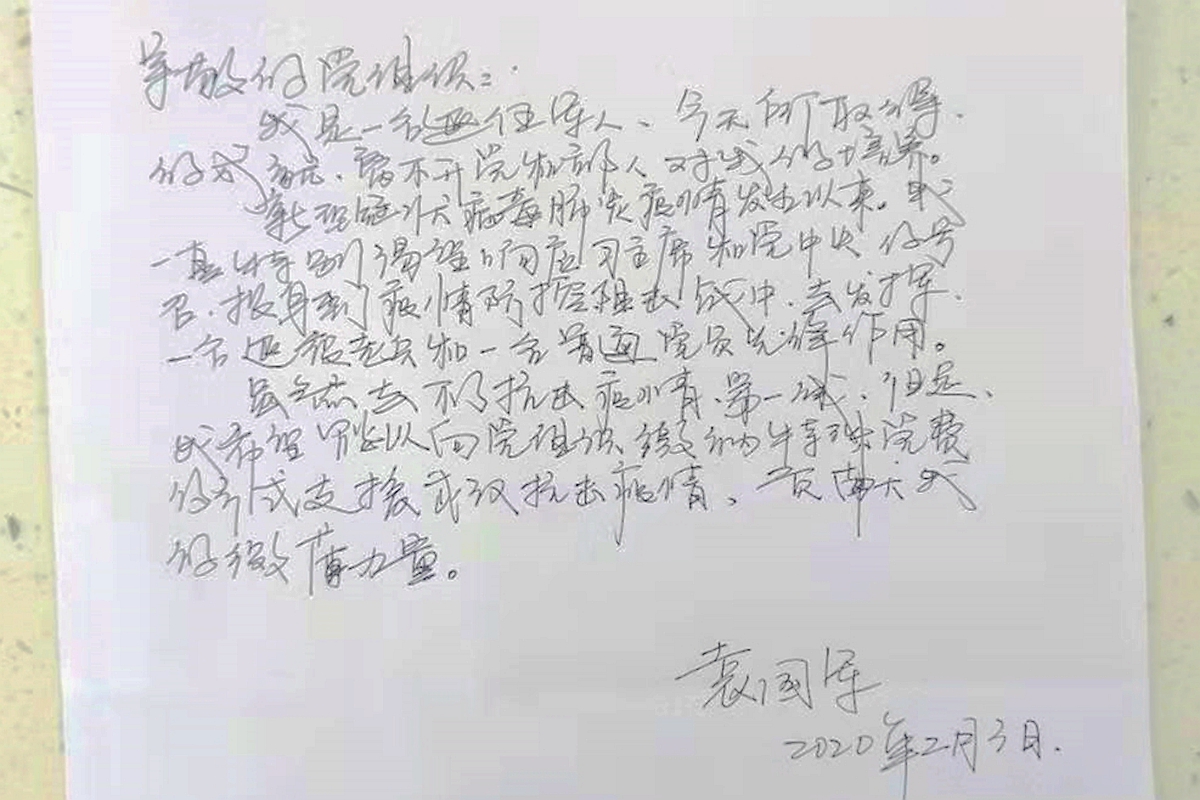 尊敬的党组织：
我是一名退伍军人、今天所取得、
的成就、离不开党和部人对我的培养。
新型冠状病毒肺炎疫情发生以来。我
一直特别渴望响应习主席和党中央的号
召、投身到疫情防控阻击战中、去发挥、
一名退役老兵和一名普通党员先锋作用。
虽然去不了抗击疫情、第一线、但是、
我希望能以向党组织缴纳特殊党费
的形式支援武汉抗击疫情、贡献我
的微薄力量。
袁国军
2020年2月3日.